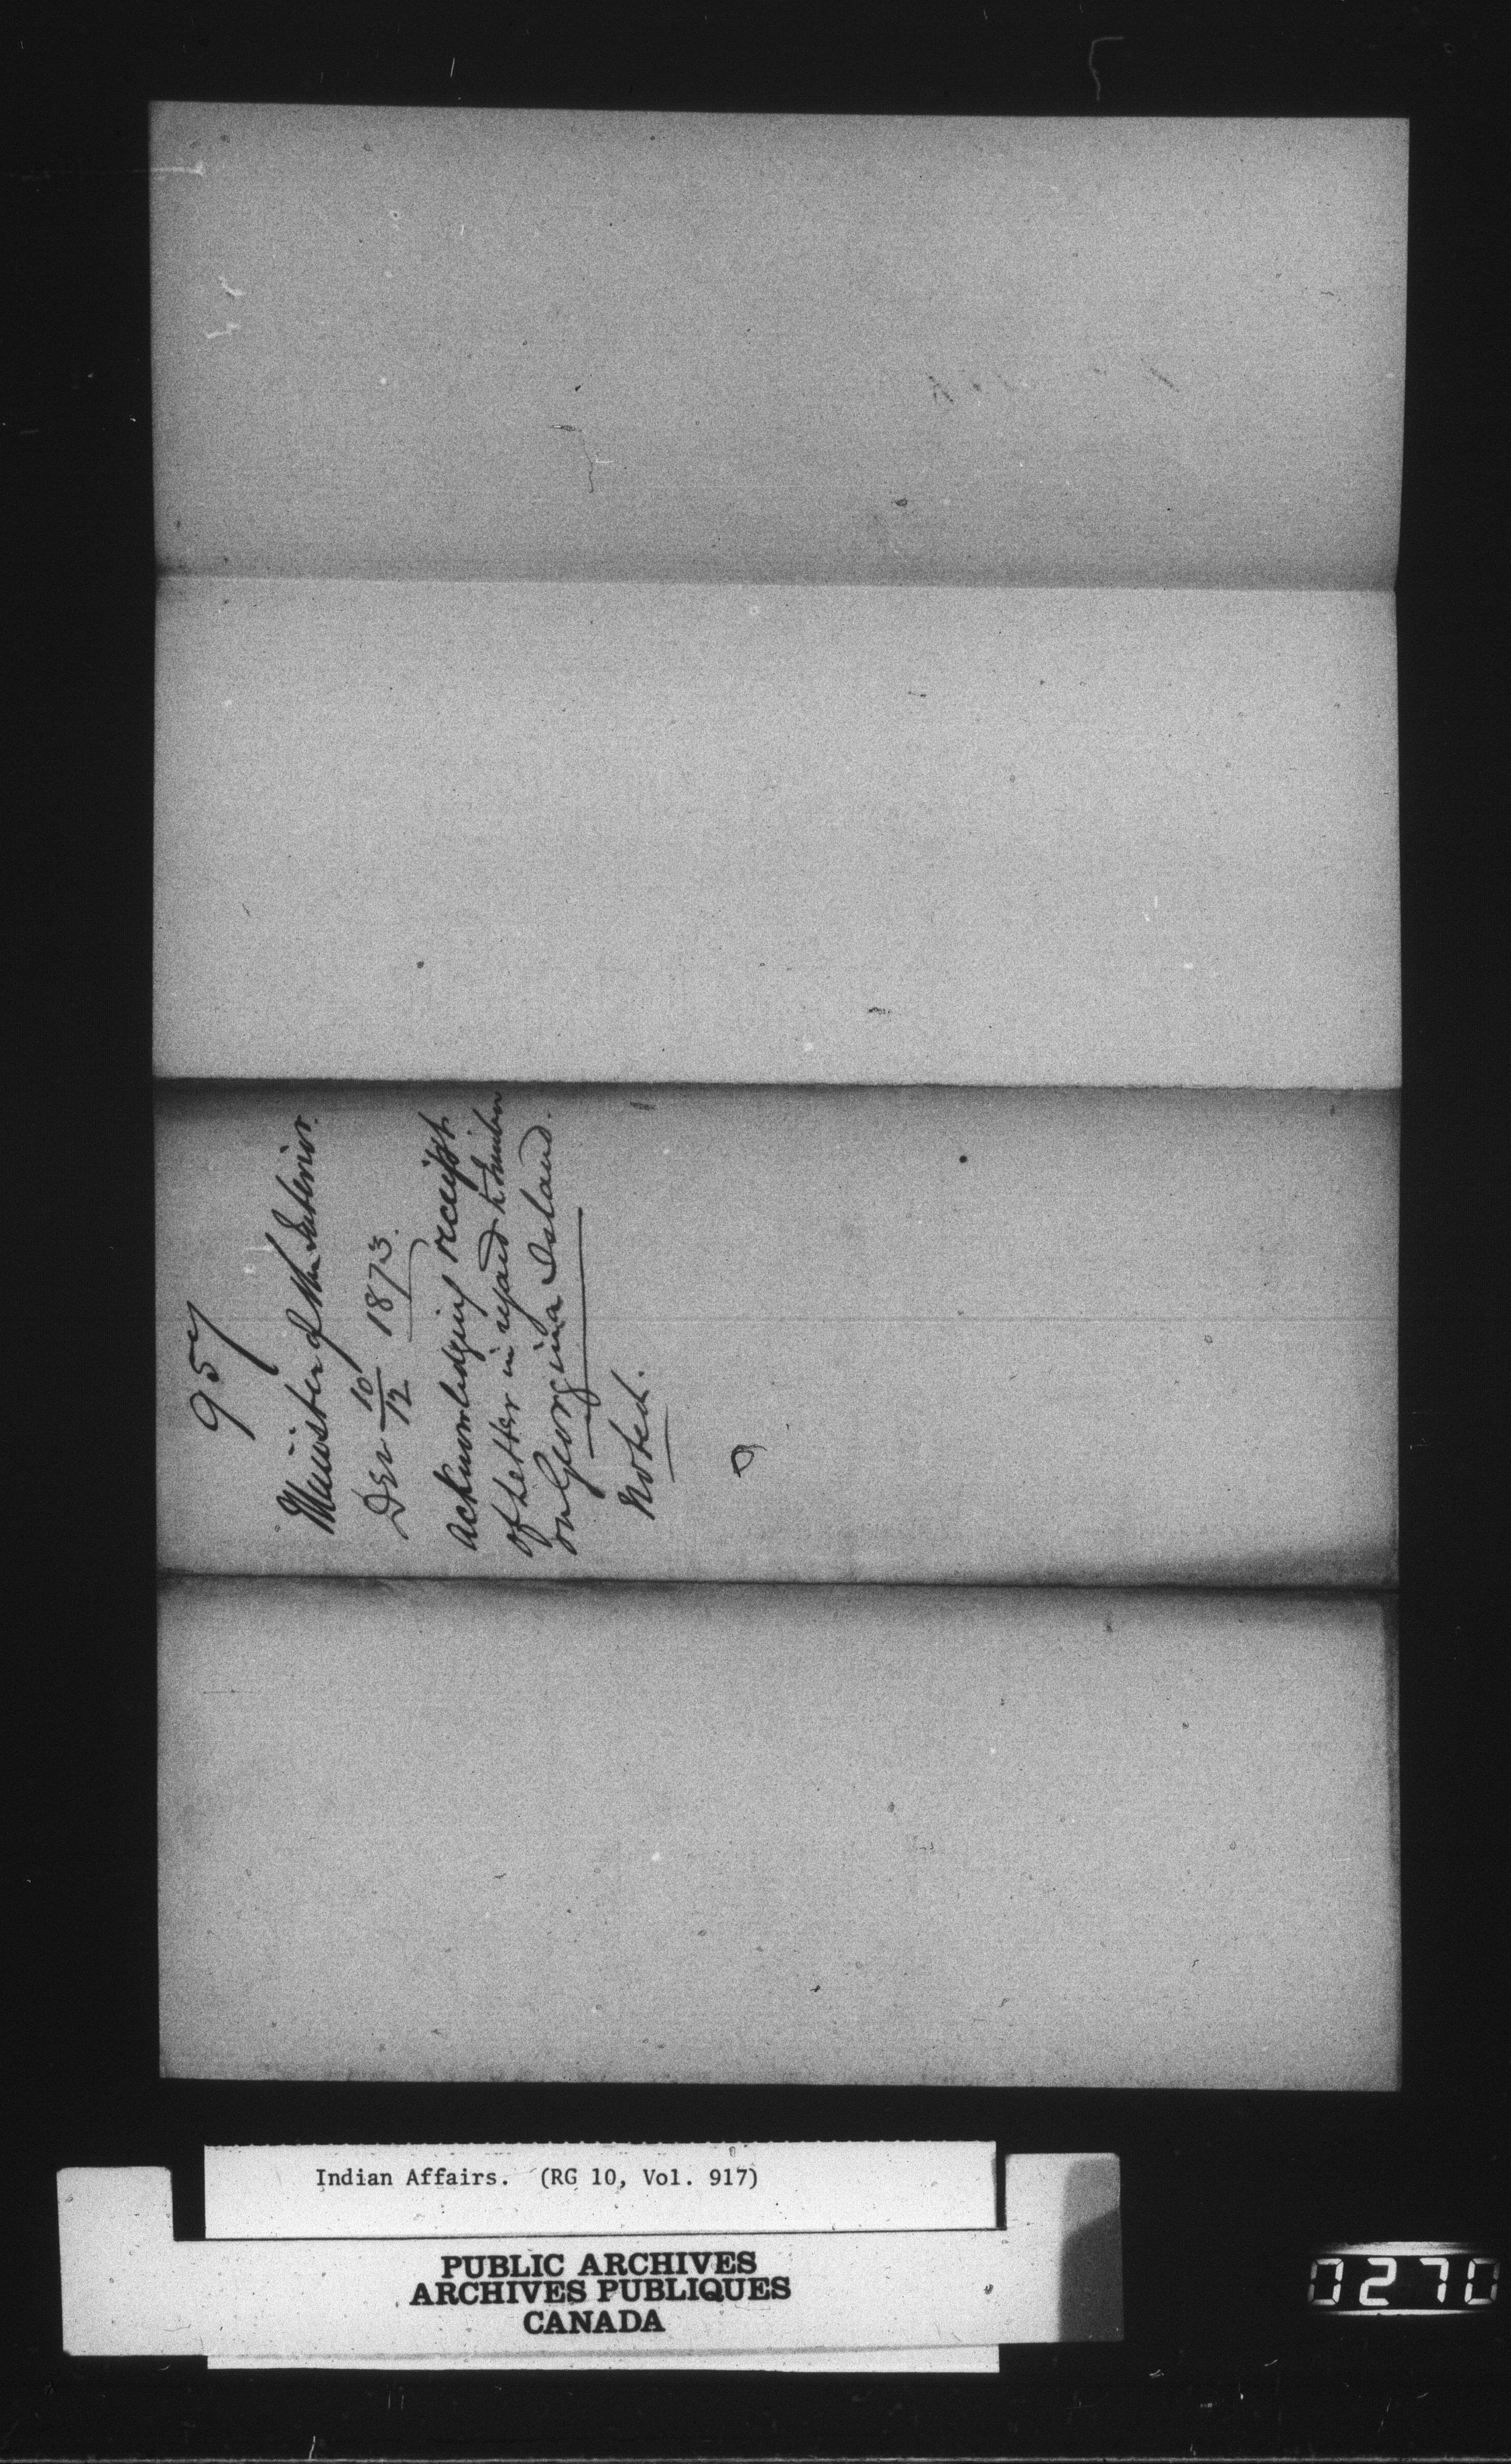 957
Minister of the Interior.
Dec 10/12 1873.
Acknowledging receipt
of Letter in regard to timber
on Georgina Island.
Noted.
Indian Affairs. (RG 10, Vol. 917)
PUBLIC ARCHIVES
ARCHIVES PUBLIQUES
CANADA
0270